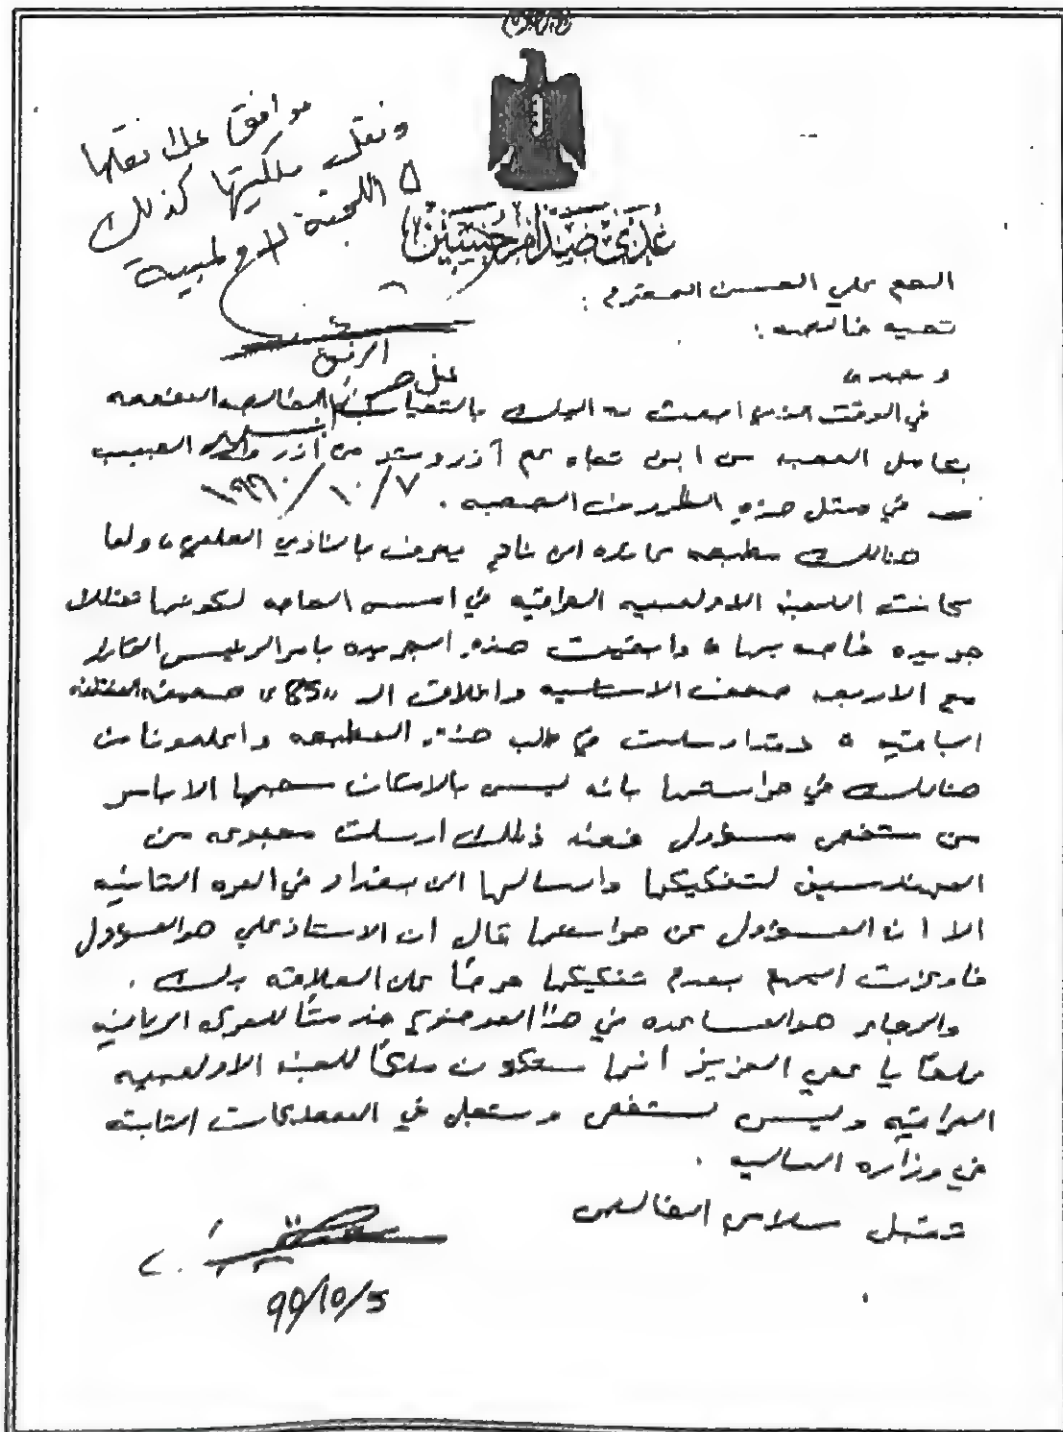 عُدَيْ صَدَّامْ حُسَيْن
موافق على نقلها
ونقل ملكيتها كذلك
اللجنة الاولمبية
العم علي الحسن المحترم :
تحيه خالصه :
وبعد ،
الرفيق
علي حسن
في الوقت الذي ابعث به اليك بالتحيات الخالصه المفعمه
بكامل المحبه من ابن تجاه عم آزر وسند من آزر الحبيب
في مثل هذه الظروف الصعبه .
١٩٩٠/١٠/٧
هنالك مطبعه عائده الى نادي يعرف بالنادي العلمي ، ولما
كانت اللجنه الاولمبيه العراقيه في امس الحاجه لكونها تمتلك
جريده خاصه بها ، وابقيت هذه الجريده بامر الرئيس القائد
مع الاربعه صحف الاساسيه واغلاق الـ "85" صحيفه
الباقيه ، وقد ارسلت في طلب هذه المطبعه واعلمونا من
هنالك في حراستها بانه ليس بالامكان سحبها الا بامر
من شخص مسؤول فعند ذلك ارسلت مجموعه من
المهندسين لتفكيكها وارسالها الى بغداد في المره الثانيه
الا ان المسؤول عن حراستها قال ان الاستاذ علي هو المسؤول
فاوعزت اليهم بعدم تفكيكها حرصًا على العلاقه بك .
والرجاء هو المساعده في هذا الموضوع خدمتًا للحركه الرياضيه
علمًا يا عمي العزيز أنها ستكون ملكًا للجنه الاولمبيه
العراقيه وليس لشخص وستسجل في الممتلكات الثابته
في وزاره الماليه .
وتقبل سلامي الخالص
90/10/5